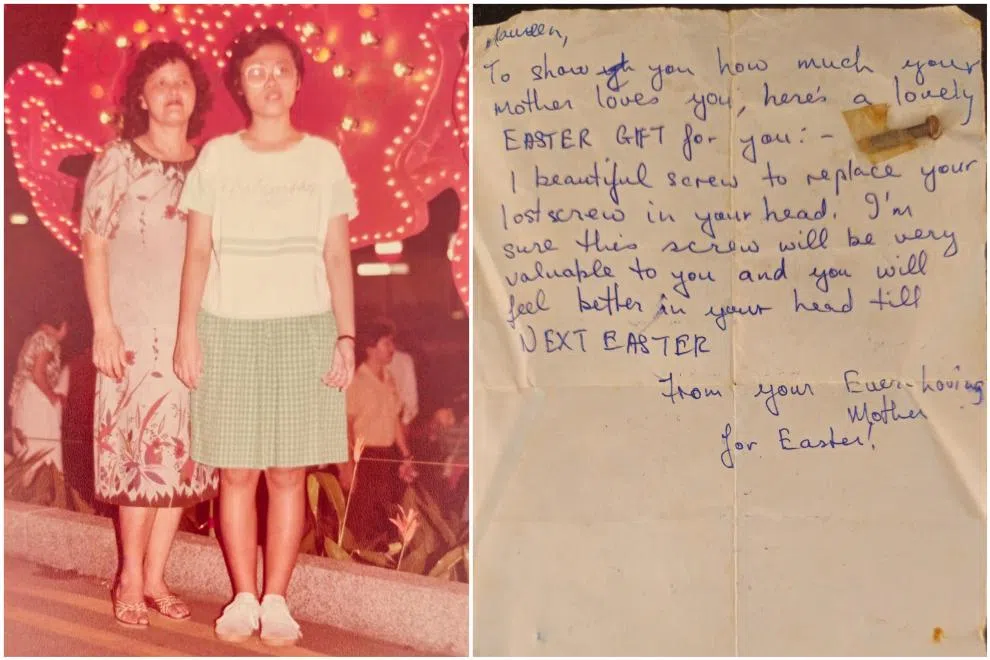 Maureen,
To show you how much your
mother loves you, here's a lovely
EASTER GIFT for you:-
1 beautiful screw to replace your
lost screw in your head. I'm
sure this screw will be very
valuable to you and you will
feel better in your head till
NEXT EASTER
From your Ever-loving
Mother
for Easter!